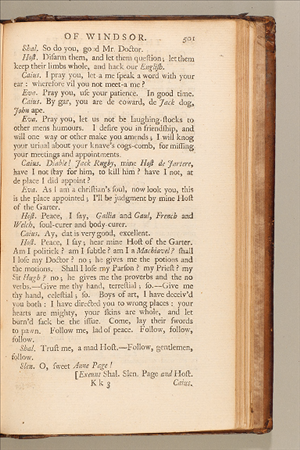 OF WINDSOR. 501
Shal. So do you, good Mr. Doctor.
Host. Disarm them, and let them question; let them
keep their limbs whole, and hack our English.
Caius. I pray you, let a me speak a word with your
ear: wherefore vil you not meet-a me?
Eva. Pray you, use your patience. In good time.
Caius. By gar, you are de coward, de Jack dog,
John ape.
Eva. Pray you, let us not be laughing-stocks to
other mens humours. I desire you in friendship, and
will one way or other make you amends; I will knog
your urinal about your knave's cogs-comb, for missing
your meetings and appointments.
Caius. Diable! Jack Rugby, mine Host de Jartere,
have I not stay for him, to kill him? have I not, at
de place I did appoint?
Eva. As I am a christian's soul, now look you, this
is the place appointed; I'll be judgment by mine Host
of the Garter.
Host. Peace, I say, Gallia and Gaul, French and
Welch, soul-curer and body-curer.
Caius. Ay, dat is very good, excellent.
Host. Peace, I say; hear mine Host of the Garter.
Am I politick? am I subtle? am I a Machiavel? shall
I lose my Doctor? no; he gives me the potions and
the motions. Shall I lose my Parson? my Priest? my
Sir Hugh? no; he gives me the proverbs and the no
verbs.—Give me thy hand, terrestrial; so.—Give me
thy hand, celestial; so. Boys of art, I have deceiv'd
you both: I have directed you to wrong places: your
hearts are mighty, your skins are whole, and let
burn'd sack be the issue. Come, lay their swords
to pawn. Follow me, lad of peace. Follow, follow,
follow.
Shal. Trust me, a mad Host.—Follow, gentlemen,
follow.
Slen. O, sweet Anne Page!
[Exeunt Shal. Slen. Page and Host.
K k 3 Caius.